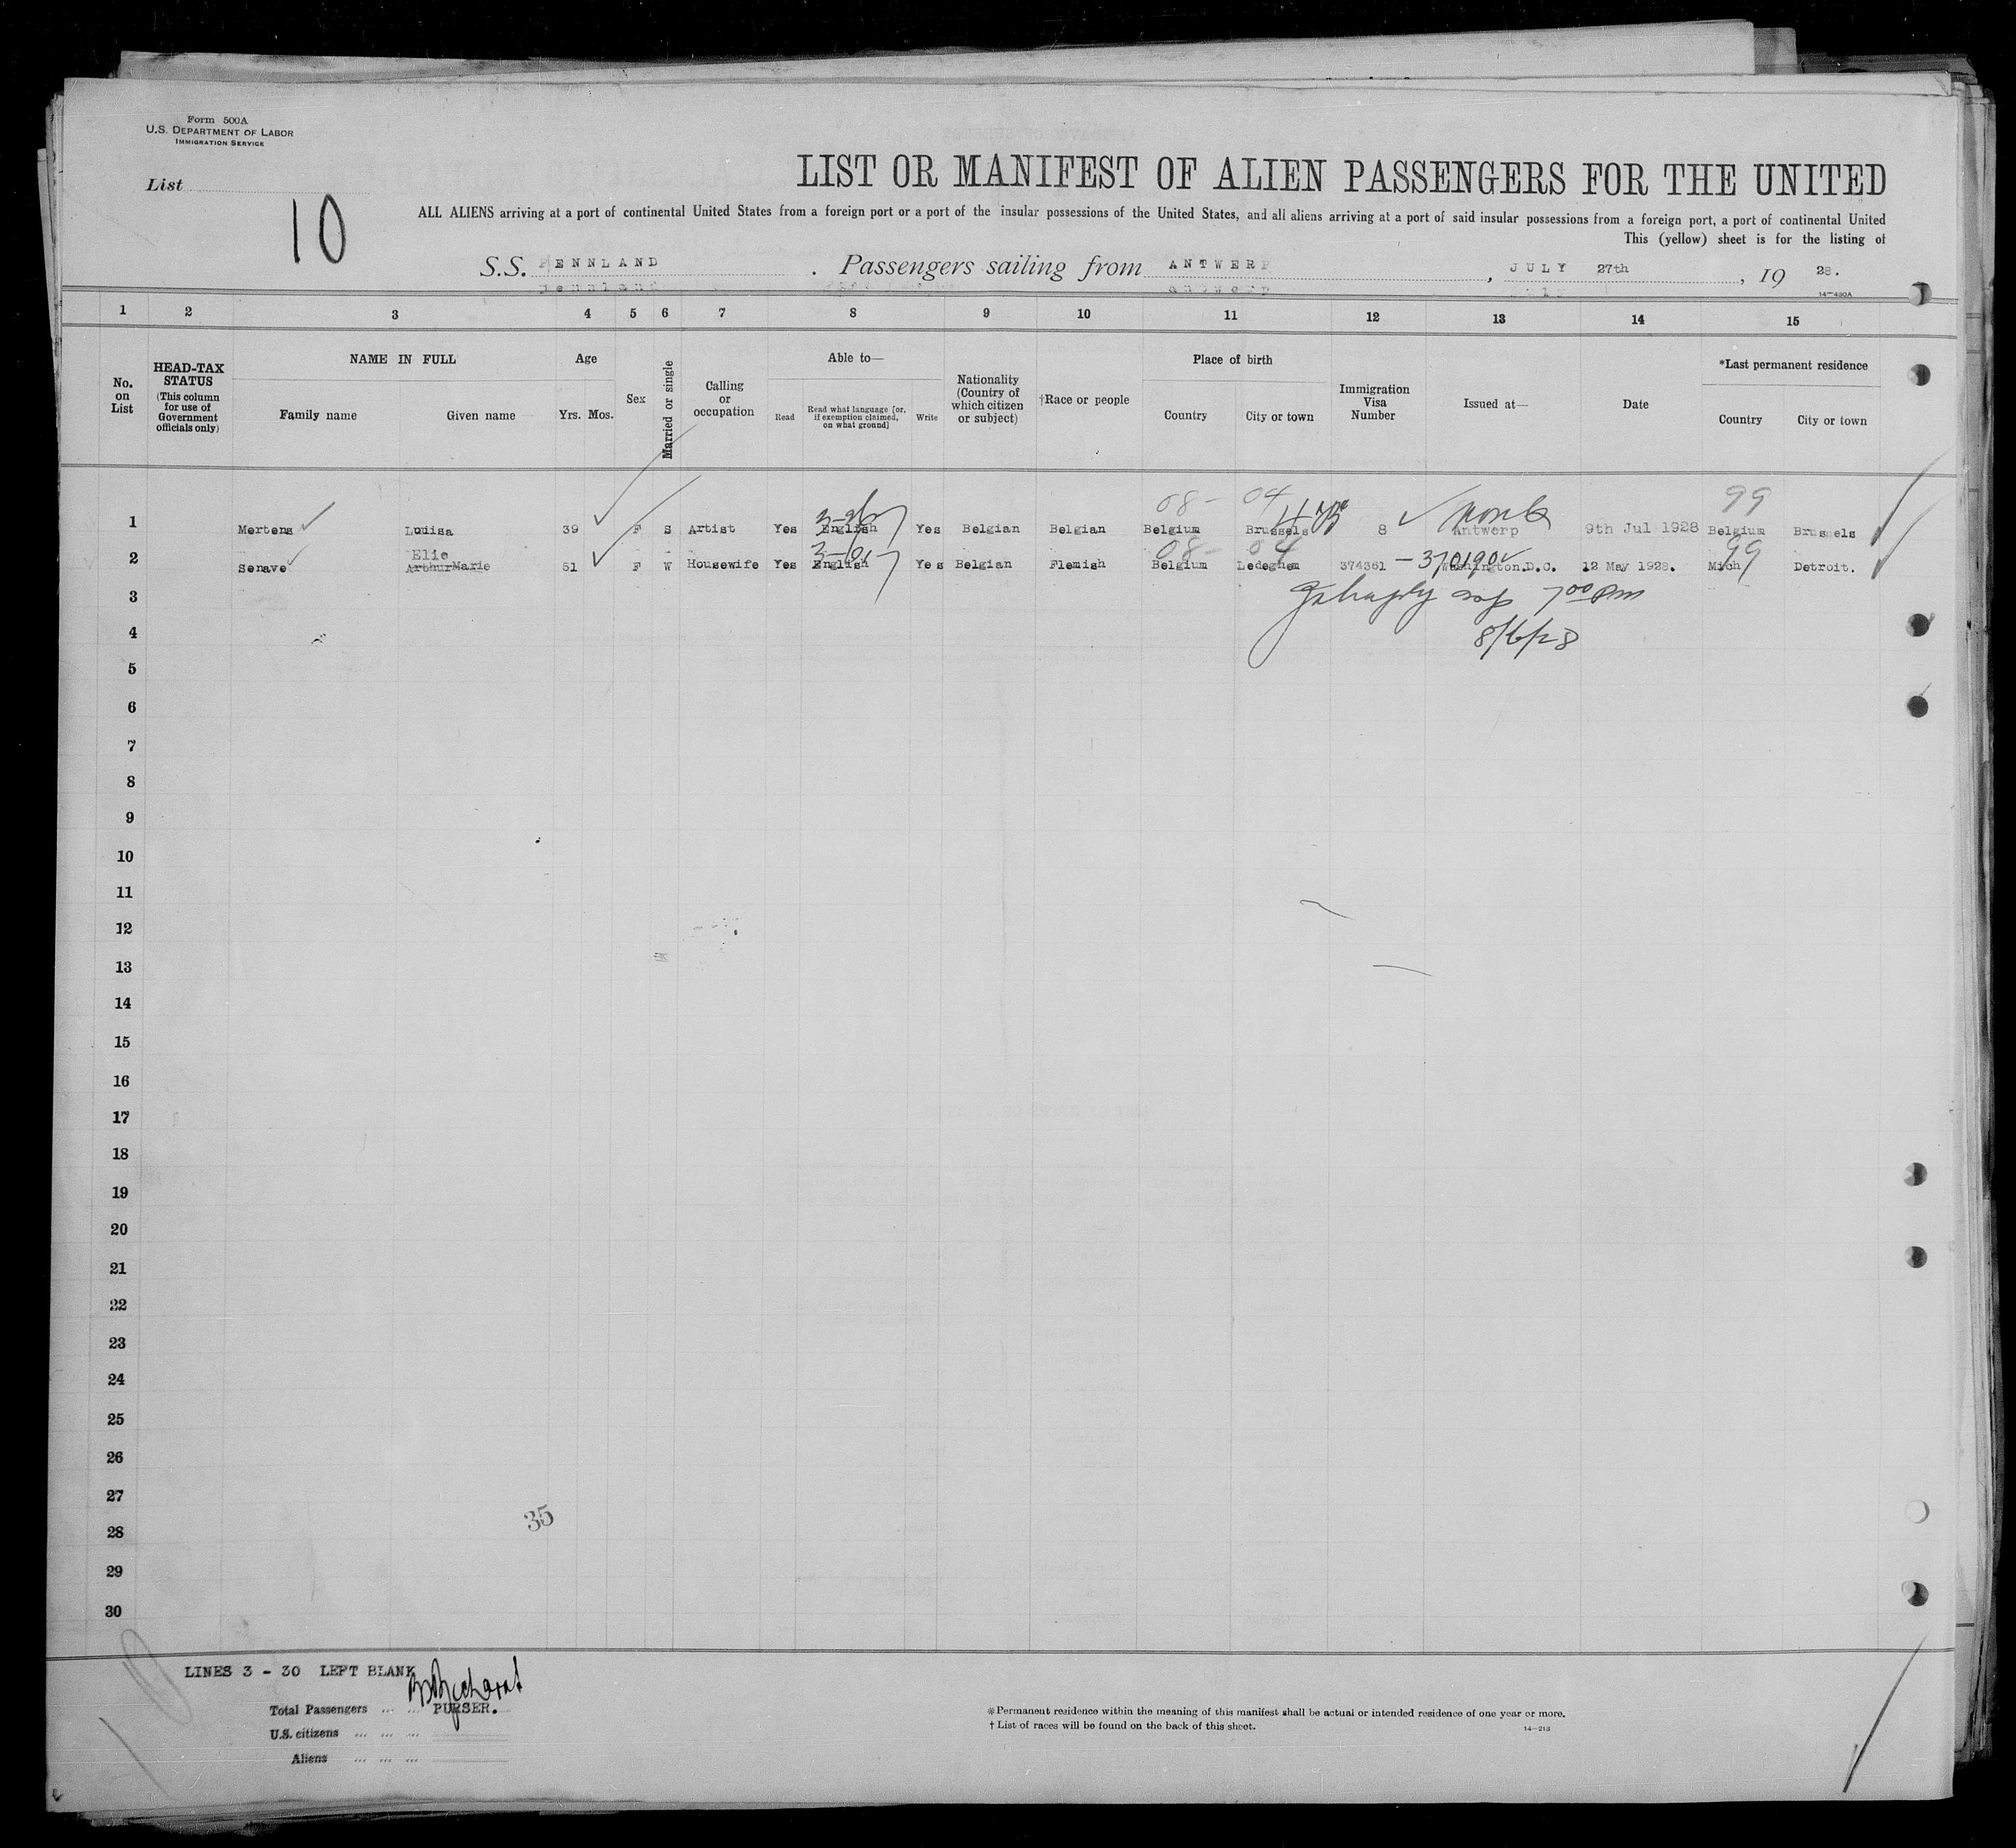 Form 500A
U.S. DEPARTMENT OF LABOR
IMMIGRATION SERVICE
List
10
LIST OR MANIFEST OF ALIEN PASSENGERS FOR THE UNITED
ALL ALIENS arriving at a port of continental United States from a foreign port or a port of the insular possessions of the United States, and all aliens arriving at a port of said insular possessions from a foreign port, a port of continental United
This (yellow) sheet is for the listing of
S.S. PENNLAND . Passengers sailing from ANTWERP , JULY 27th , 19 28.
14—430A
1 2 3 4 5 6 7 8 9 10 11 12 13 14 15
No. on List
HEAD-TAX STATUS (This column for use of Government officials only)
NAME IN FULL
Family name Given name
Age
Yrs. Mos.
Sex
Married or single
Calling or occupation
Able to—
Read
Read what language [or, if exemption claimed, on what ground]
Write
Nationality (Country of which citizen or subject)
†Race or people
Place of birth
Country City or town
Immigration Visa Number
Issued at—
Date
*Last permanent residence
Country City or town
08- 04 99
1 Mertens Louisa 39 F S Artist Yes English Yes Belgian Belgian Belgium Brussels 8 Antwerp 9th Jul 1928 Belgium Brussels
Elie
08- 04 99
2 Senave Arthur Marie 51 F W Housewife Yes English Yes Belgian Flemish Belgium Ledeghem 374361 - 370190 Washington.D.C. 12 May 1928. Mich Detroit.
3
7 00 pm
4
8/6/28
5
6
7
8
9
10
11
12
13
14
15
16
17
18
19
20
21
22
23
24
25
26
27
35
28
29
30
LINES 3 - 30 LEFT BLANK
Total Passengers ... ... PURSER.
U.S. citizens ... ... ...
Aliens ... ... ...
*Permanent residence within the meaning of this manifest shall be actual or intended residence of one year or more.
†List of races will be found on the back of this sheet.
14—213